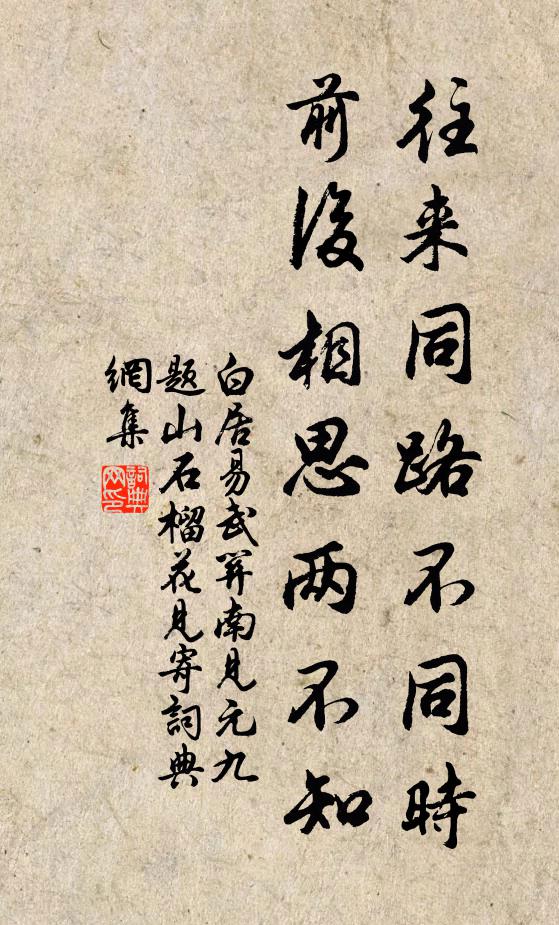 往来同路不同時
前後相思两不知
白居易武関南見元九
題山石榴花見寄詞典
網集
詞典
网印